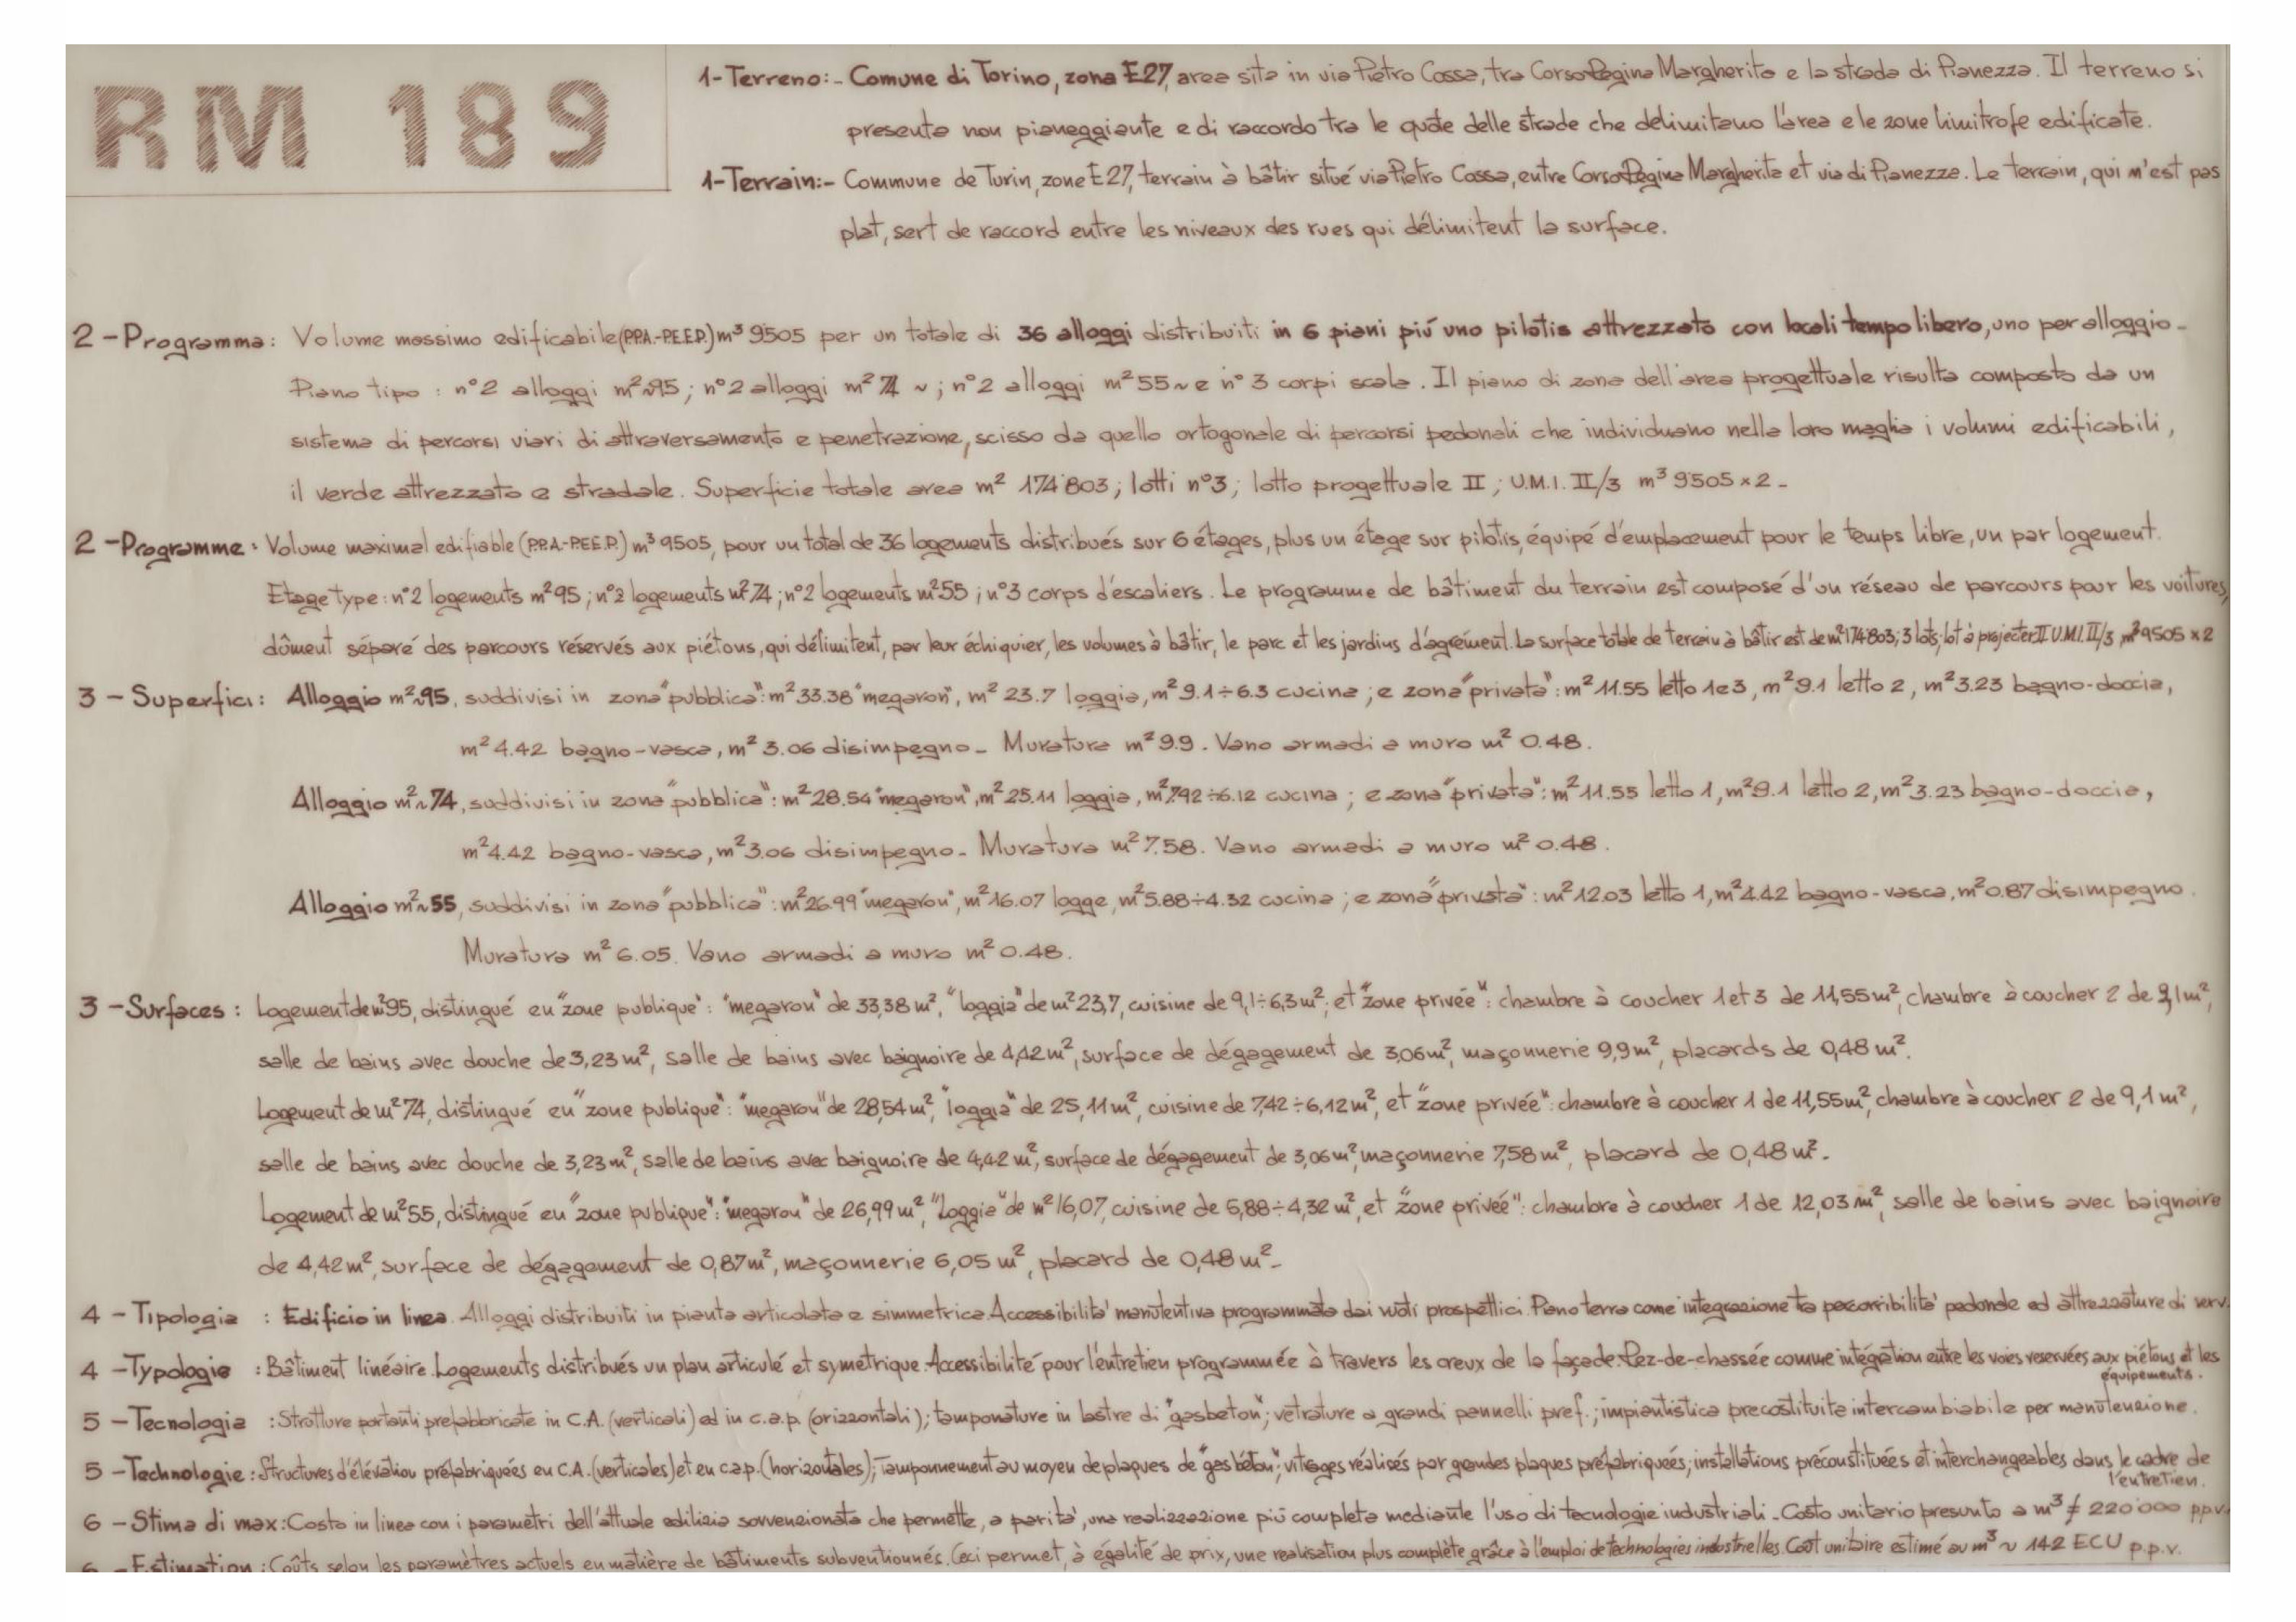 RM 189
1-Terreno:- Comune di Torino, zona E27, area sita in via Pietro Cossa, tra Corso Regina Margherita e la strada di Pianezza. Il terreno si
presenta non pianeggiante e di raccordo tra le quote delle strade che delimitano l'area e le zone limitrofe edificate.
1-Terrain:- Commune de Turin, zone E27, terrain à bâtir situé via Pietro Cossa, entre Corso Regina Margherita et via di Pianezza. Le terrain, qui n'est pas
plat, sert de raccord entre les niveaux des rues qui délimitent la surface.
2-Programma: Volume massimo edificabile (P.P.A.-P.E.E.P.) m³ 9505 per un totale di 36 alloggi distribuiti in 6 piani piú uno pilotis attrezzato con locali tempo libero, uno per alloggio-
Piano tipo : n°2 alloggi m²~95; n°2 alloggi m² 74 ~; n°2 alloggi m² 55~ e n° 3 corpi scala. Il piano di zona dell'area progettuale risulta composto da un
sistema di percorsi viari di attraversamento e penetrazione, scisso da quello ortogonale di percorsi pedonali che individuano nella loro maglia i volumi edificabili,
il verde attrezzato e stradale. Superficie totale area m² 174'803; lotti n°3; lotto progettuale II; U.M.I. II/3 m³ 9505 x 2-
2-Programme: Volume maximal edifiable (P.P.A.-P.E.E.P.) m³ 9505, pour un total de 36 logements distribués sur 6 étages, plus un étage sur pilotis, équipé d'emplacement pour le temps libre, un par logement.
Etage type: n°2 logements m²95; n°2 logements m²74; n°2 logements m²55; n°3 corps d'escaliers. Le programme de bâtiment du terrain est composé d'un réseau de parcours pour les voitures,
dûment séparé des parcours réservés aux piétons, qui délimitent, par leur échiquier, les volumes à bâtir, le parc et les jardins d'agrément. La surface totale de terrain à bâtir est de m² 174'803; 3 lots; lot à projecter II U.M.I. II/3, m³ 9505 x 2
3-Superfici: Alloggio m²~95, suddivisi in zona "pubblica": m² 33.38 "megaron", m² 23.7 loggia, m² 9.1÷6.3 cucina; e zona "privata": m² 11.55 letto 1e3, m² 9.1 letto 2, m² 3.23 bagno-doccia,
m² 4.42 bagno-vasca, m² 3.06 disimpegno- Muratura m² 9.9. Vano armadi a muro m² 0.48.
Alloggio m²~74, suddivisi in zona "pubblica": m² 28.54 "megaron", m² 25.11 loggia, m² 7.42÷6.12 cucina; e zona "privata": m² 11.55 letto 1, m² 9.1 letto 2, m² 3.23 bagno-doccia,
m² 4.42 bagno-vasca, m² 3.06 disimpegno- Muratura m² 7.58. Vano armadi a muro m² 0.48.
Alloggio m²~55, suddivisi in zona "pubblica": m² 26.99 "megaron", m² 16.07 logge, m² 5.88÷4.32 cucina; e zona "privata": m² 12.03 letto 1, m² 4.42 bagno-vasca, m² 0.87 disimpegno.
Muratura m² 6.05. Vano armadi a muro m² 0.48.
3-Surfaces: Logement de m²95, distingué en "zone publique": "megaron" de 33,38 m², "loggia" de m² 23,7, cuisine de 9,1÷6,3 m²; et "zone privée": chambre à coucher 1 et 3 de 11,55 m², chambre à coucher 2 de 9,1 m²,
salle de bains avec douche de 3,23 m², salle de bains avec baignoire de 4,42 m², surface de dégagement de 3,06 m², maçonnerie 9,9 m², placards de 0,48 m².
Logement de m² 74, distingué en "zone publique": "megaron" de 28,54 m², "loggia" de 25,11 m², cuisine de 7,42÷6,12 m², et "zone privée": chambre à coucher 1 de 11,55 m², chambre à coucher 2 de 9,1 m²,
salle de bains avec douche de 3,23 m², salle de bains avec baignoire de 4,42 m², surface de dégagement de 3,06 m², maçonnerie 7,58 m², placard de 0,48 m².
Logement de m² 55, distingué en "zone publique": "megaron" de 26,99 m², "loggia" de m² 16,07, cuisine de 5,88÷4,32 m², et "zone privée": chambre à coucher 1 de 12,03 m², salle de bains avec baignoire
de 4,42 m², surface de dégagement de 0,87 m², maçonnerie 6,05 m², placard de 0,48 m².-
4-Tipologia : Edificio in linea. Alloggi distribuiti in pianta articolata e simmetrica. Accessibilita' manutentiva programmata dai vuoti prospettici. Piano terra come integrazione tra percorribilita' pedonale ed attrezzature di serv.
4-Typologie : Bâtiment linéaire. Logements distribués un plan articulé et symetrique. Accessibilité pour l'entretien programmée à travers les creux de la façade. Rez-de-chassée comme intégration entre les voies reservées aux piétons et les
équipements.
5-Tecnologia : Strutture portanti prefabbricate in C.A. (verticali) ed in c.a.p. (orizzontali); tamponature in lastre di "gasbeton"; vetrature a grandi pannelli pref.; impiantistica precostituita intercambiabile per manutenzione.
5-Technologie: Structures d'élévation préfabriquées en C.A. (verticales) et en c.a.p. (horizontales); Tamponnement au moyen de plaques de "gas béton"; vitrages réalisés par grandes plaques préfabriquées; installations préconstituées et interchangeables dans le cadre de
l'entretien.
6-Stima di max: Costo in linea con i parametri dell'attuale edilizia sovvenzionata che permette, a parita', una realizzazione piú completa mediante l'uso di tecnologie industriali. Costo unitario presunto a m³ £ 220'000 p.p.v.
6-Estimation: Coûts selon les paramètres actuels en matière de bâtiments subventionnés. Ceci permet, à égalité de prix, une realisation plus complète grâce à l'emploi de technologies industrielles. Coût unitaire estimé au m³ ~ 142 ECU p.p.v.